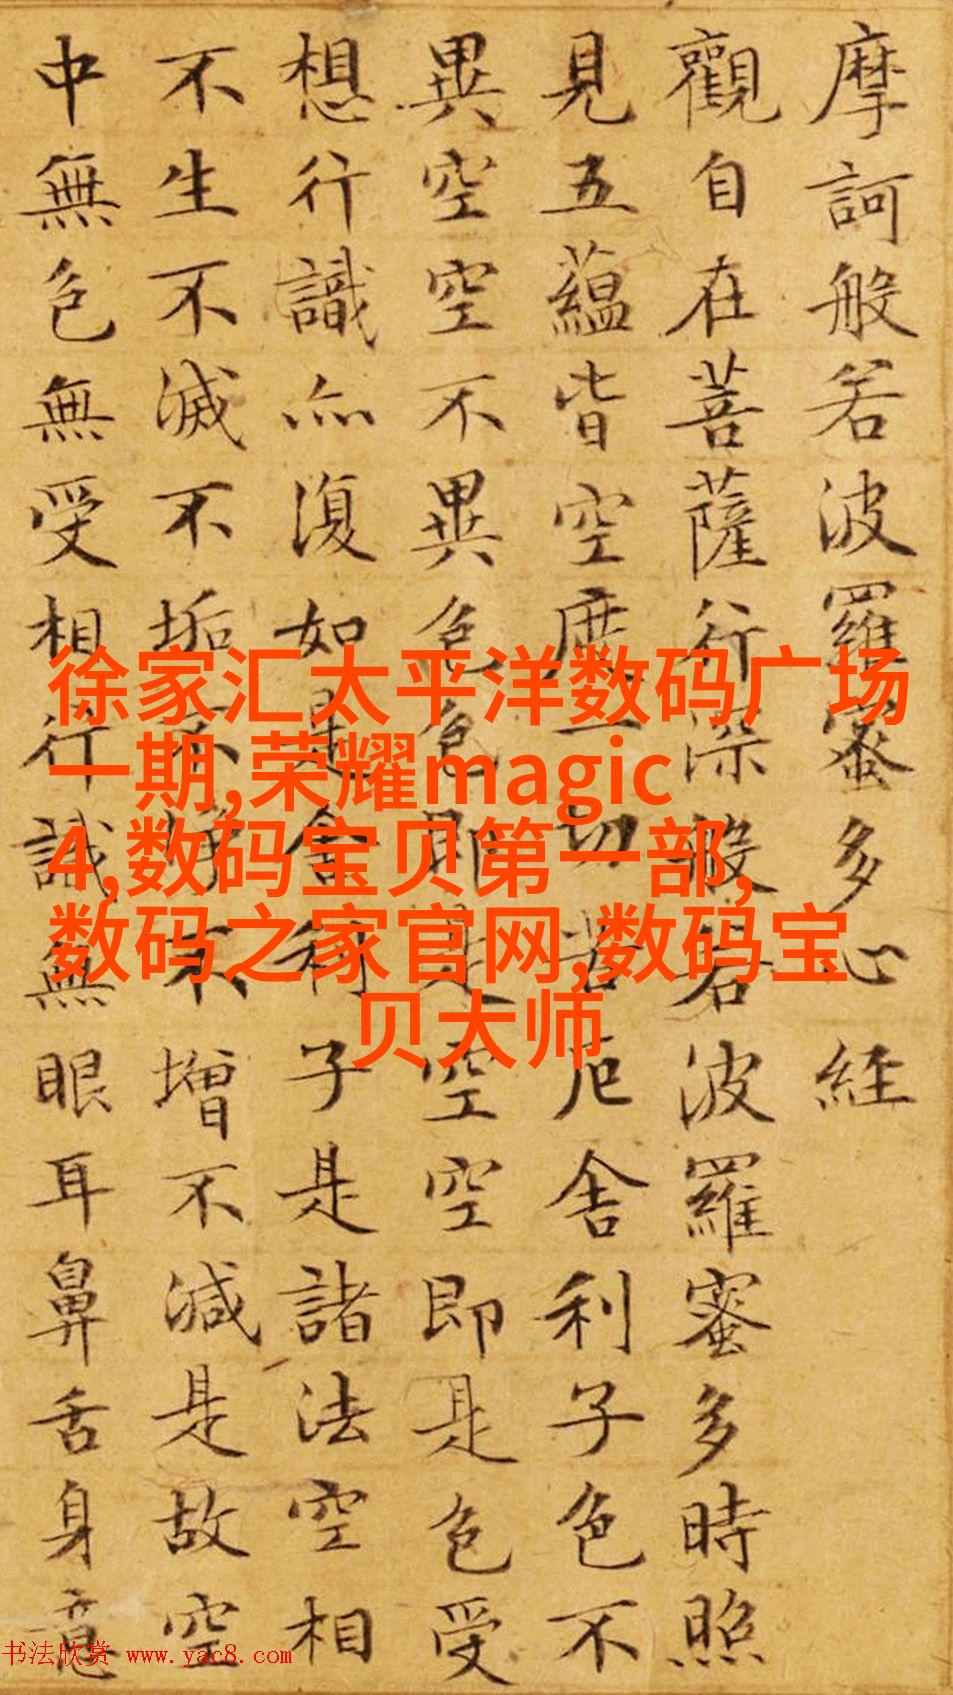 摩訶般若波羅蜜多心經
觀自在菩薩行深般若波羅蜜多時照
見五蘊皆空度一切苦厄舍利子色不
異空空不異色色即是空空即是色受
想行識亦復如是舍利子是諸法空相
不生不滅不垢不淨不增不減是故空
中無色無受想行識無眼耳鼻舌身意
徐家汇太平洋数码广场
一期,荣耀magic
4,数码宝贝第一部,
数码之家官网,数码宝
贝大师
书法欣赏 www.yac8.com